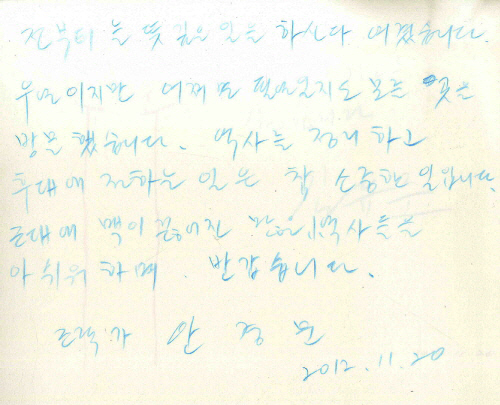 전부터 늘 뜻 깊은 일을 하신다 여겼습니다.
우연이지만 어쩌면 필연일지도 모를 곳을
방문했습니다. 역사를 정리하고
후대에 전하는 일은 참 소중한 일입니다.
근대에 맥이 끊어진 많은 역사들을
아쉬워하며. 반갑습니다.
조각가 안경문
2012.11.20